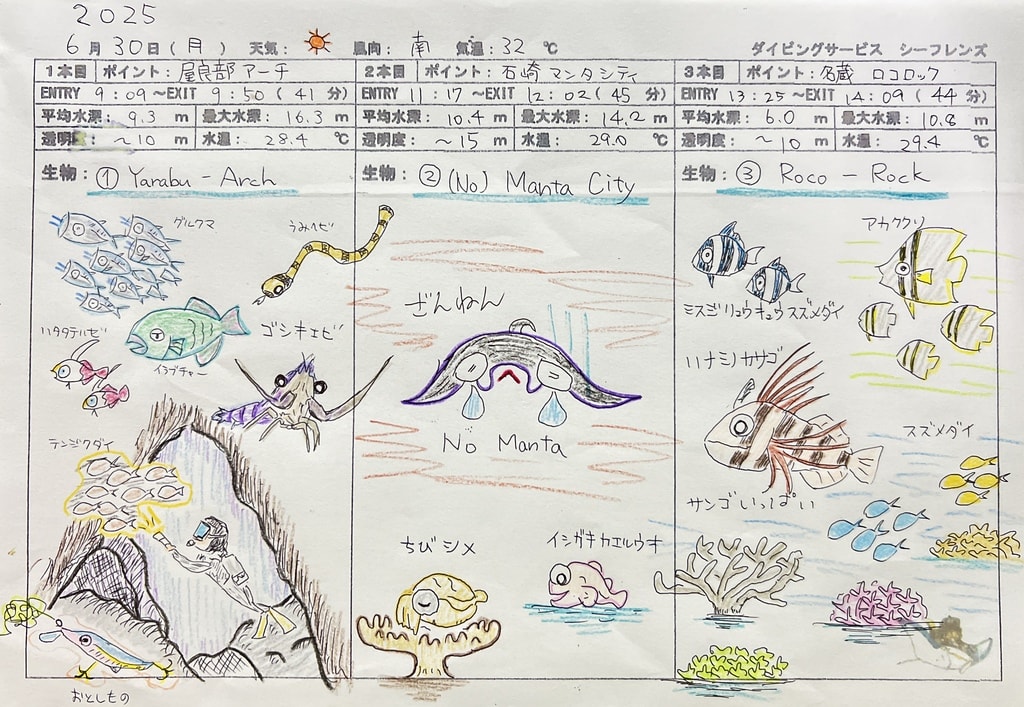 2025
6月30日(月) 天気: 風向: 南 気温: 32 ℃ ダイビングサービス シーフレンズ
1本目 ポイント: 屋良部アーチ
ENTRY 9:09~EXIT 9:50(41分)
平均水深: 9.3 m 最大水深: 16.3 m
透明度: ~10 m 水温: 28.4 ℃
生物: ① Yarabu-Arch
グルクマ
うみヘビ
ハタタテハゼ
イラブチャー
ゴシキエビ
テンジクダイ
おとしもの
2本目 ポイント: 石崎 マンタシティ
ENTRY 11:17~EXIT 12:02(45分)
平均水深: 10.4 m 最大水深: 14.2 m
透明度: ~15 m 水温: 29.0 ℃
生物: ② (No) Manta City
ざんねん
No Manta
ちびシメ
イシガキカエルウオ
3本目 ポイント: 名蔵 ロコロック
ENTRY 13:25~EXIT 14:09(44分)
平均水深: 6.0 m 最大水深: 10.8 m
透明度: ~10 m 水温: 29.4 ℃
生物: ③ Roco-Rock
アカククリ
ミスジリュウキュウスズメダイ
ハナミノカサゴ
スズメダイ
サンゴいっぱい